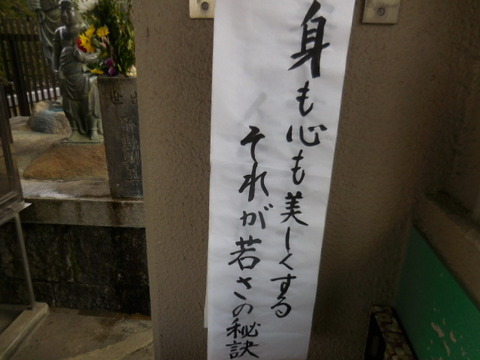 身も心も美しくする
それが若さの秘訣